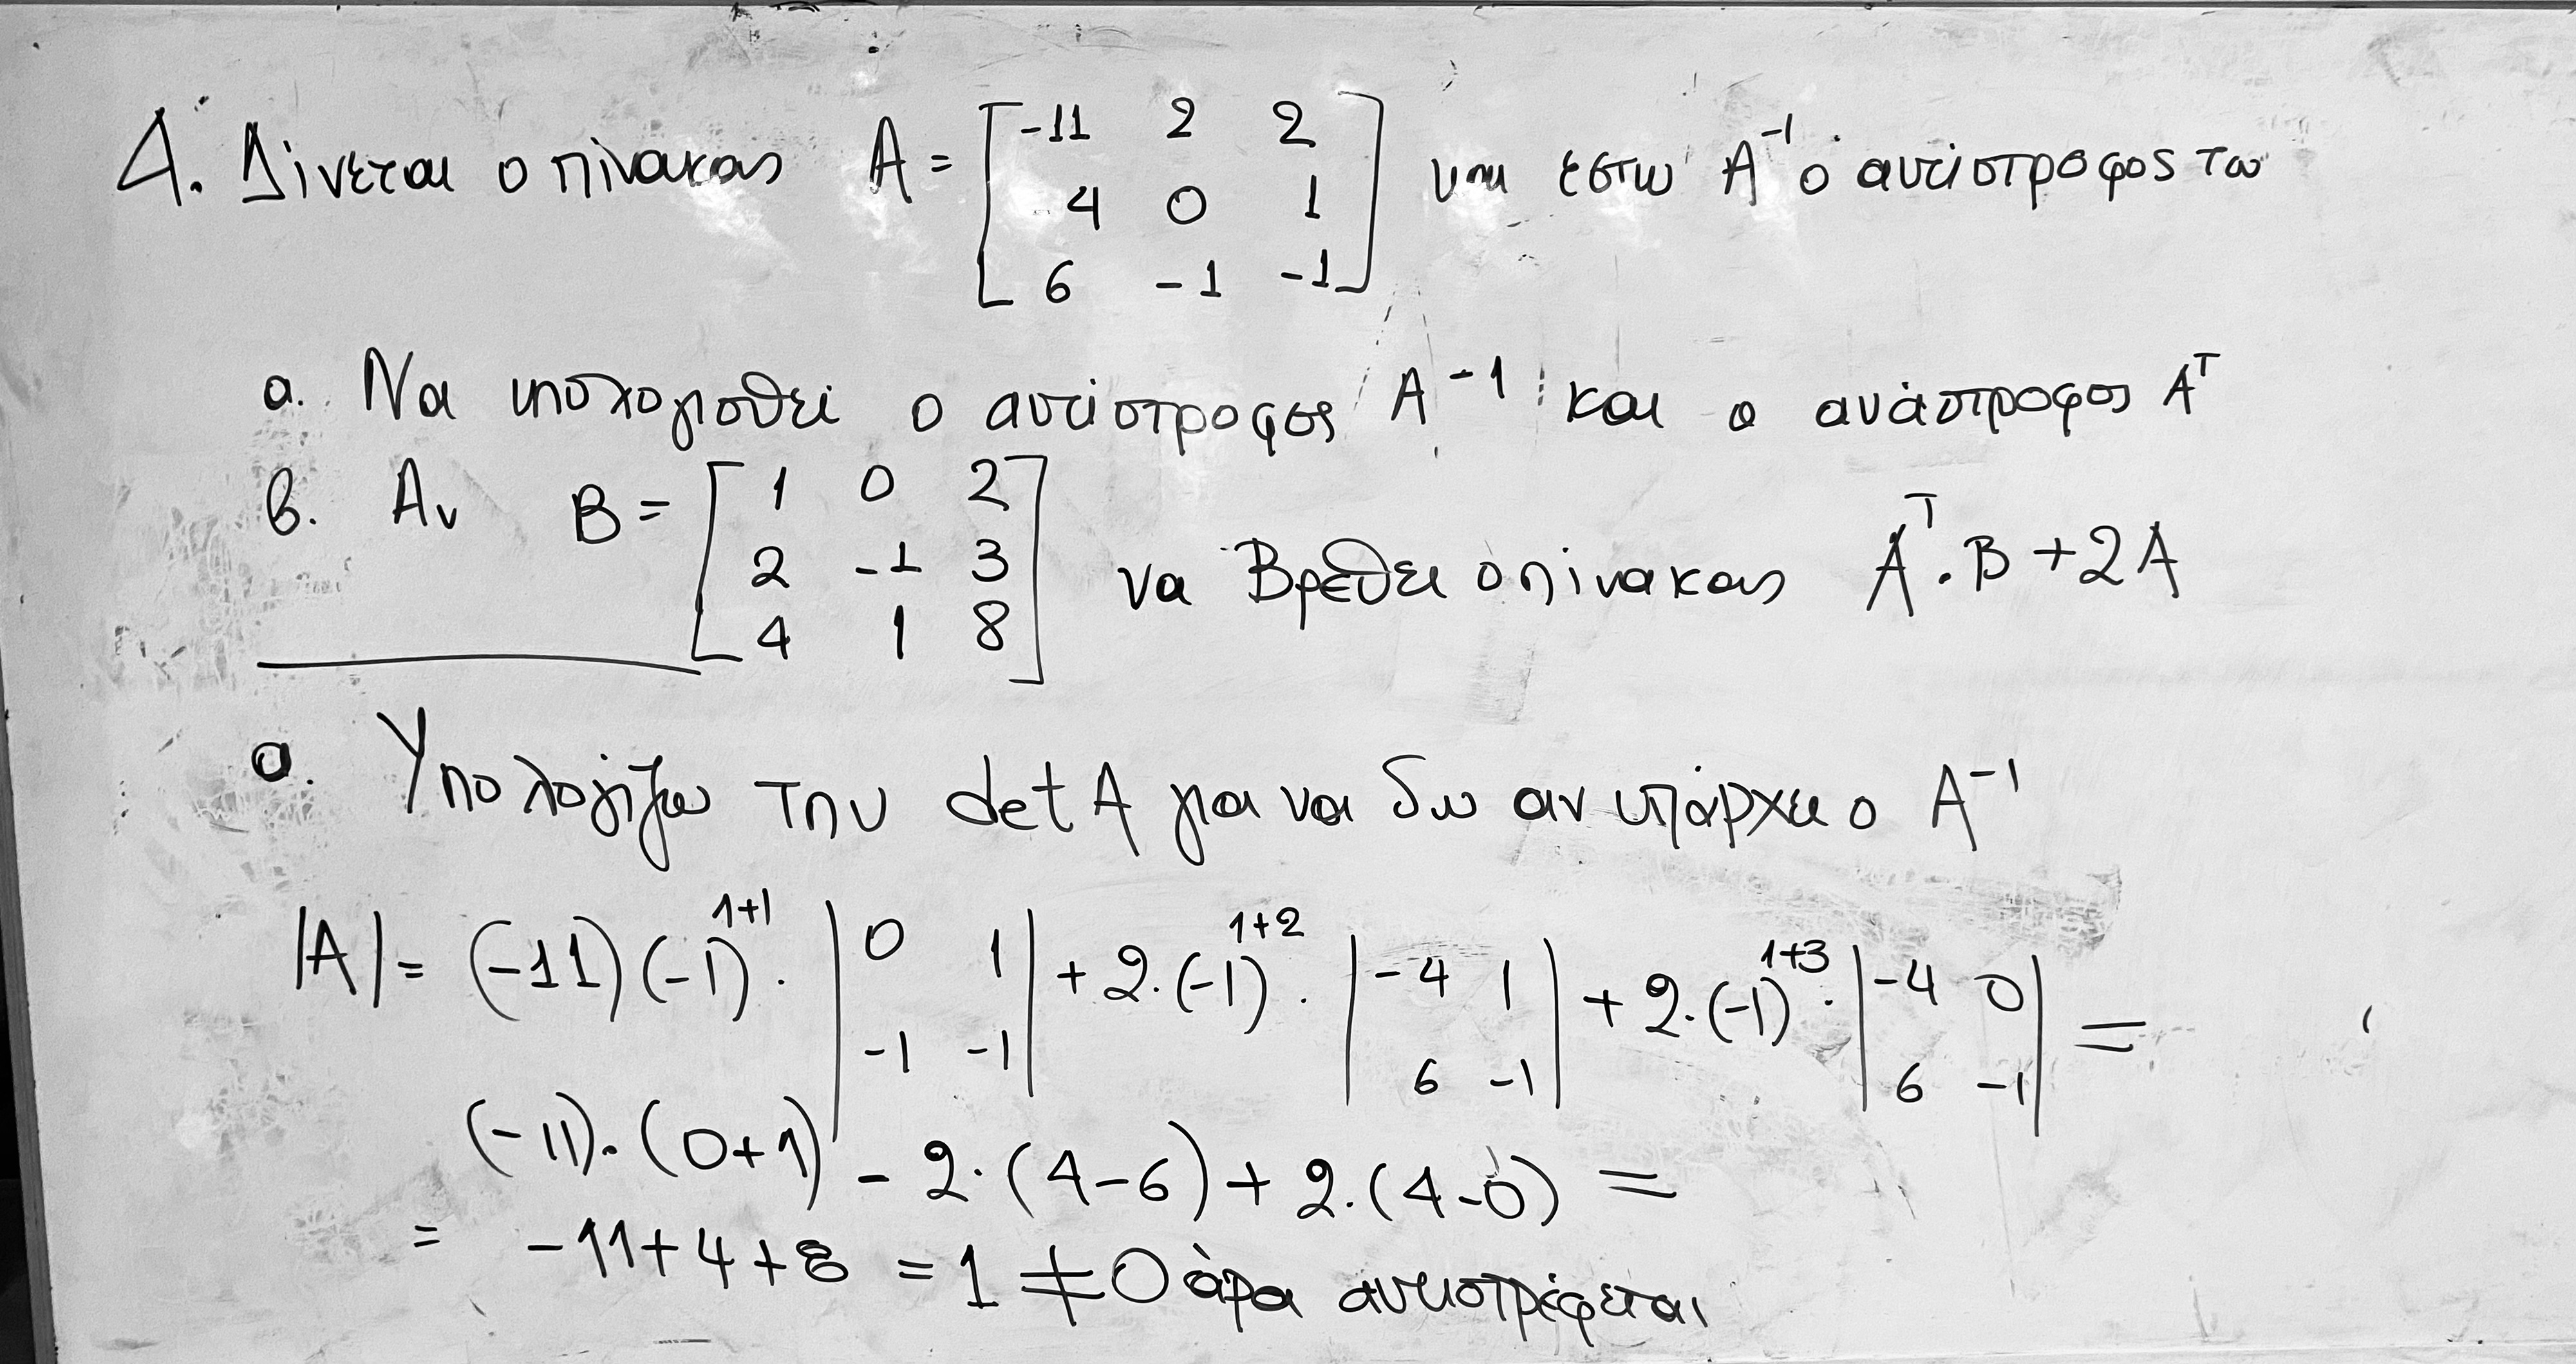 4. Δίνεται ο πίνακας A = [ -11 2 2 ; -4 0 1 ; 6 -1 -1 ] και έστω A⁻¹ ο αντίστροφος του
a. Να υπολογισθεί ο αντίστροφος A⁻¹ και ο ανάστροφος Aᵀ
β. Αν B = [ 1 0 2 ; 2 -1 3 ; 4 1 8 ] να βρεθεί ο πίνακας Aᵀ·B+2A
a. Υπολογίζω την det A για να δω αν υπάρχει ο A⁻¹
|A| = (-11)(-1)¹⁺¹ · | 0 1 ; -1 -1 | + 2·(-1)¹⁺² · | -4 1 ; 6 -1 | + 2·(-1)¹⁺³ · | -4 0 ; 6 -1 | =
(-11)·(0+1) - 2·(4-6) + 2·(4-0) =
= -11+4+8 = 1 ≠ 0 άρα αντιστρέφεται